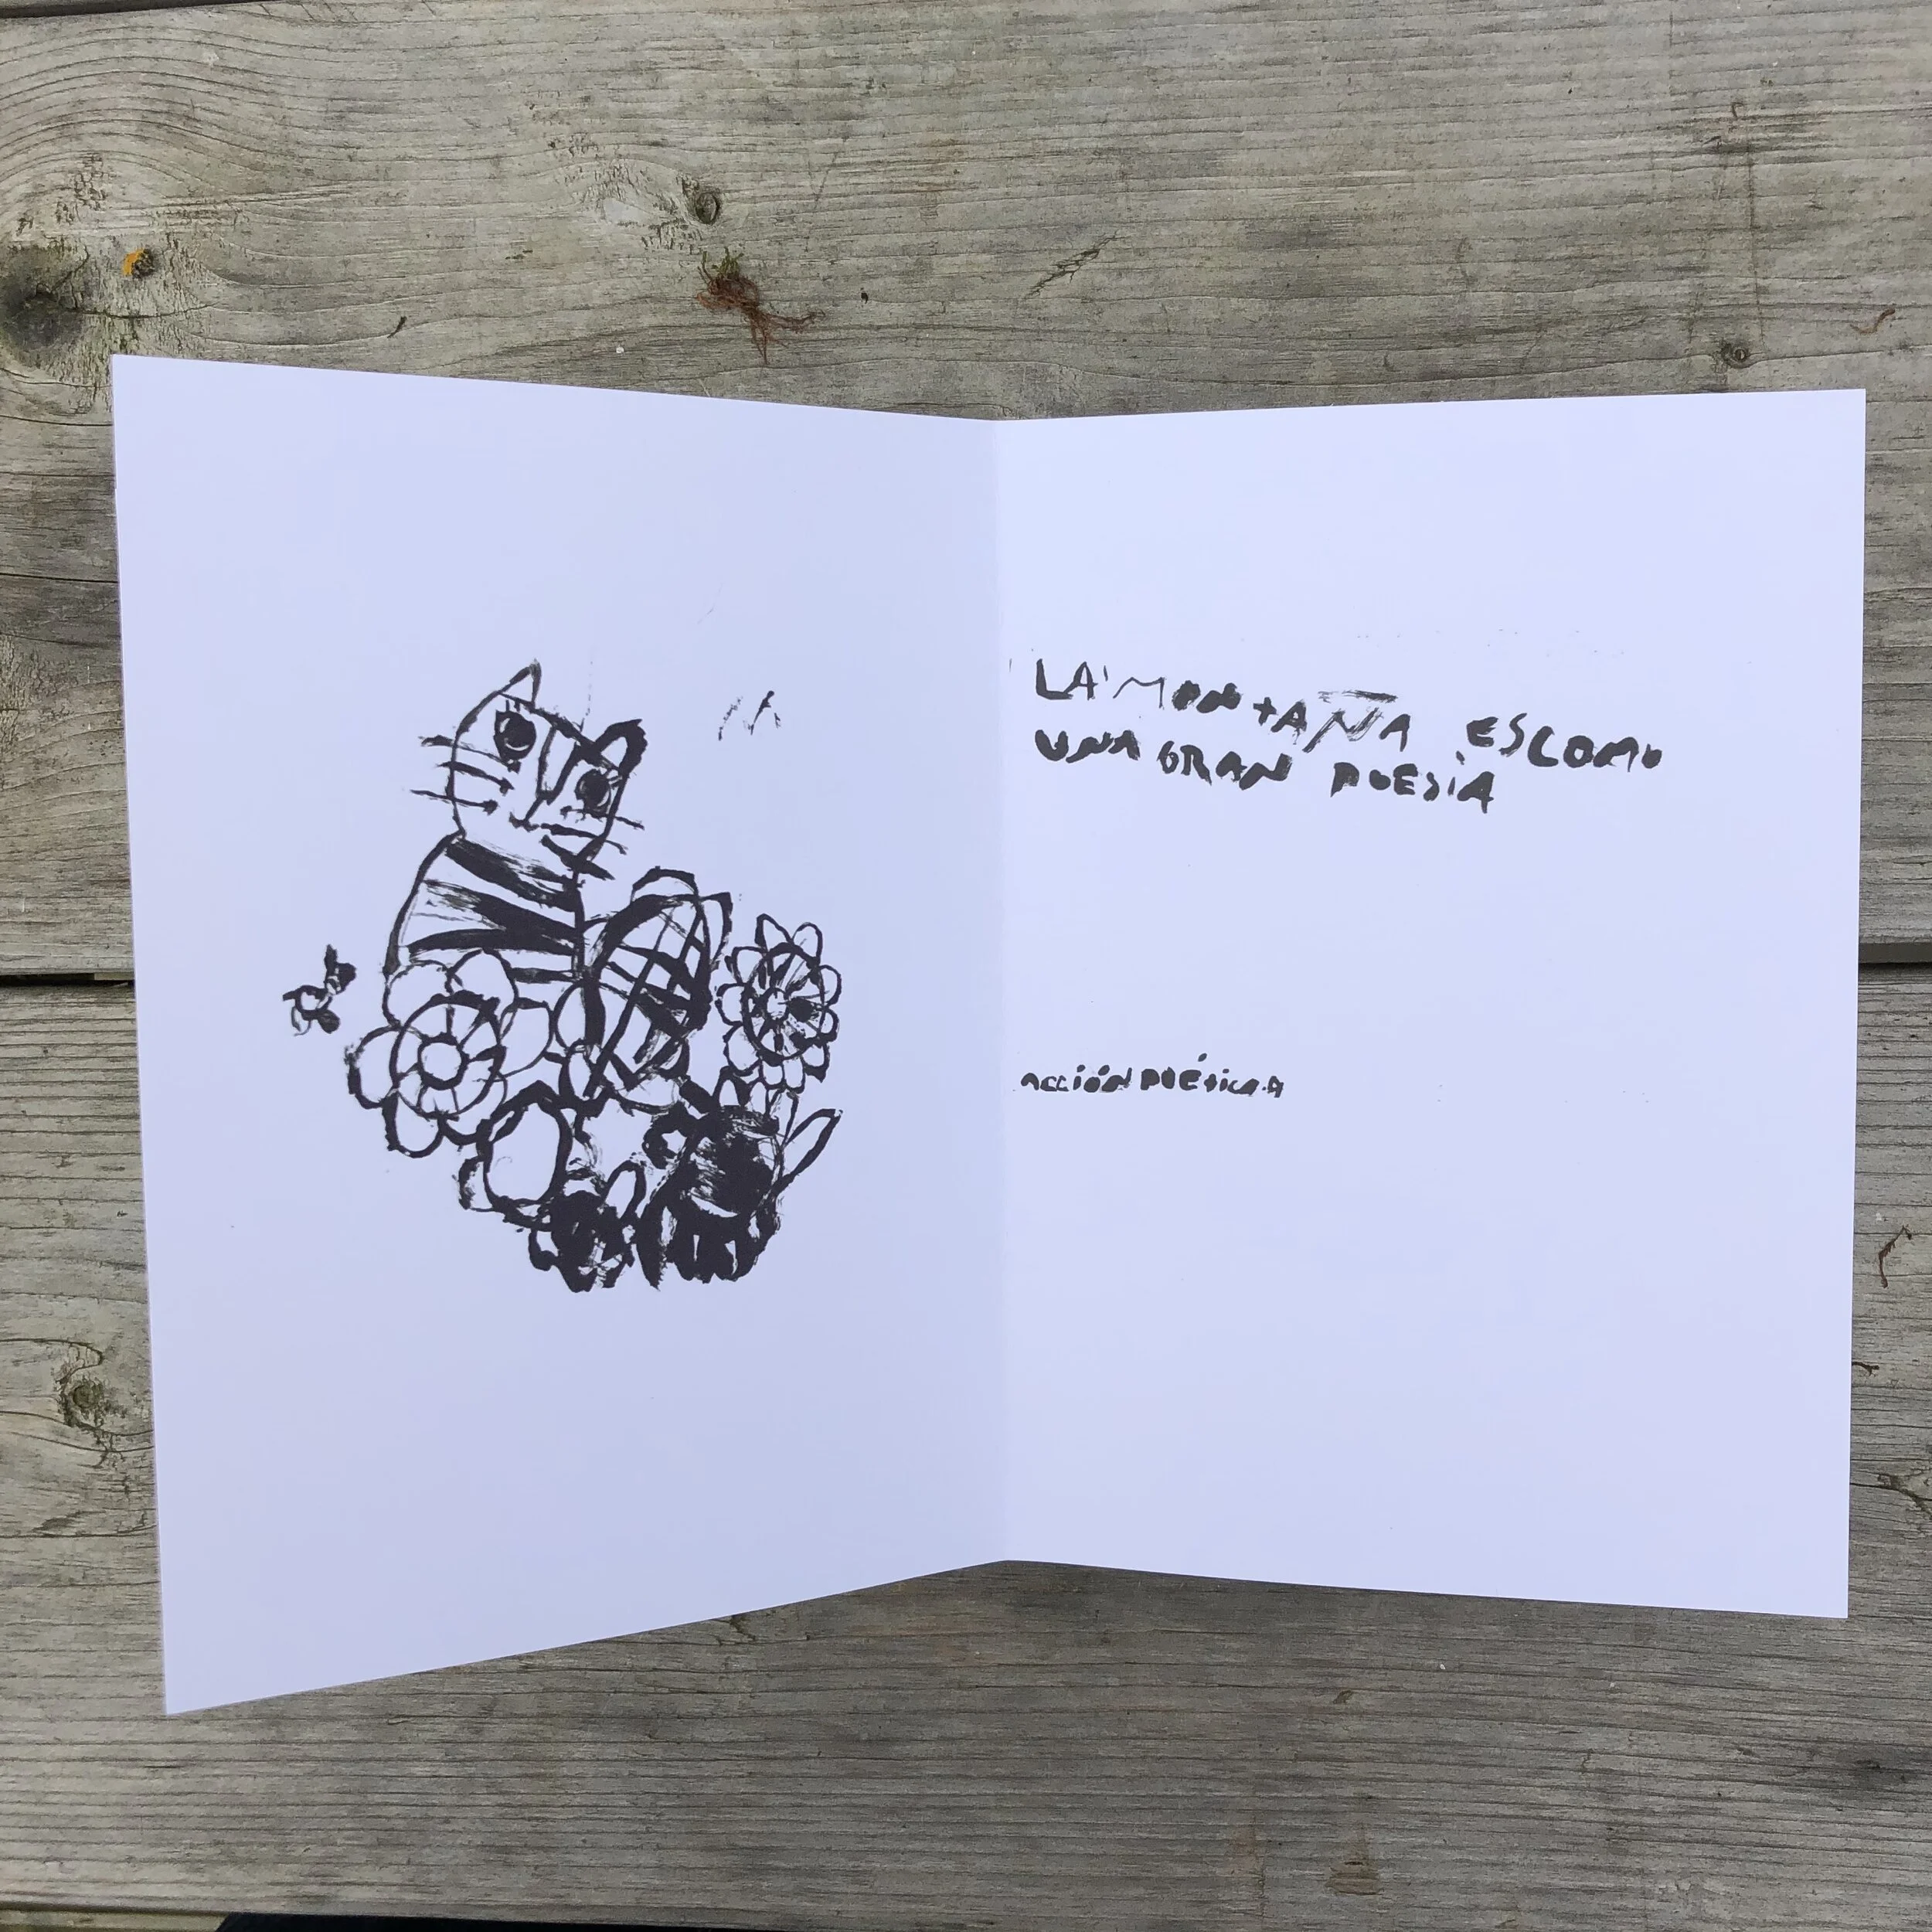 LA MONTAÑA ES COMO
UNA GRAN POESÍA
ACCIÓN POÉTICA